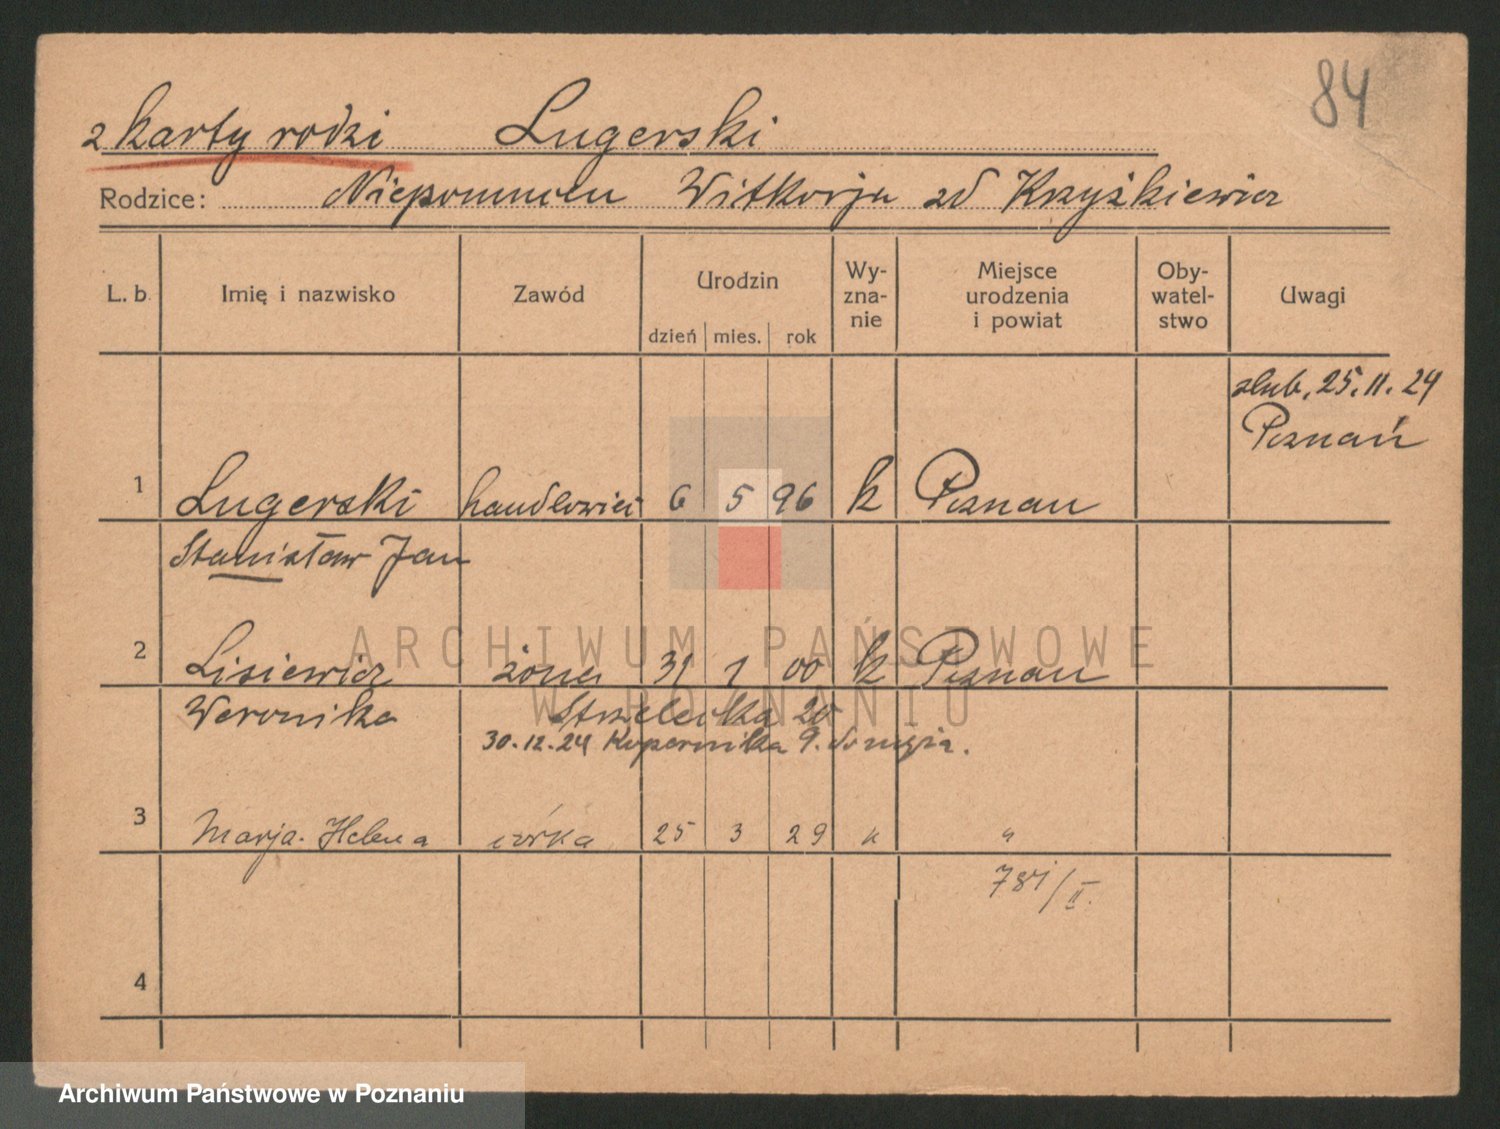 84
z karty rodzi Lugerski
Rodzice: Niepomucen Witkorja zd Krzyżkiewicz
L. b. Imię i nazwisko Zawód Urodzin Wy- Miejsce Oby- Uwagi
zna- urodzenia watel-
nie i powiat stwo
dzień mies. rok
ślub. 25.11.24
Poznań
1 Lugerski handlowiec 6 5 96 k Poznan
Stanisław Jan
2 Lisiewicz żona 31 1 00 k Poznan
Weronika Strzelecka 20
30.12.24 Kopernika 9.
3 Marja. Helena córka 25 3 29 k "
781/II.
4
ARCHIWUM PAŃSTWOWE
W POZNANIU
Archiwum Państwowe w Poznaniu